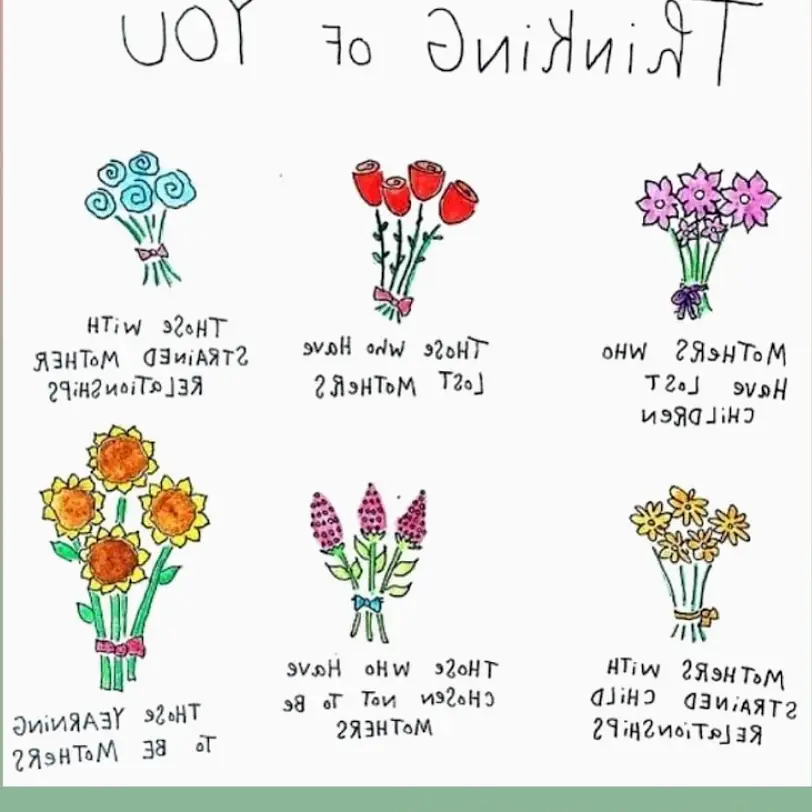 Thinking of You
Mothers who
Have Lost
Children
Those who Have
Lost Mothers
Those with
Strained Mother
Relationships
Mothers with
Strained Child
Relationships
Those who Have
Chosen Not To Be
Mothers
Those Yearning
To Be Mothers